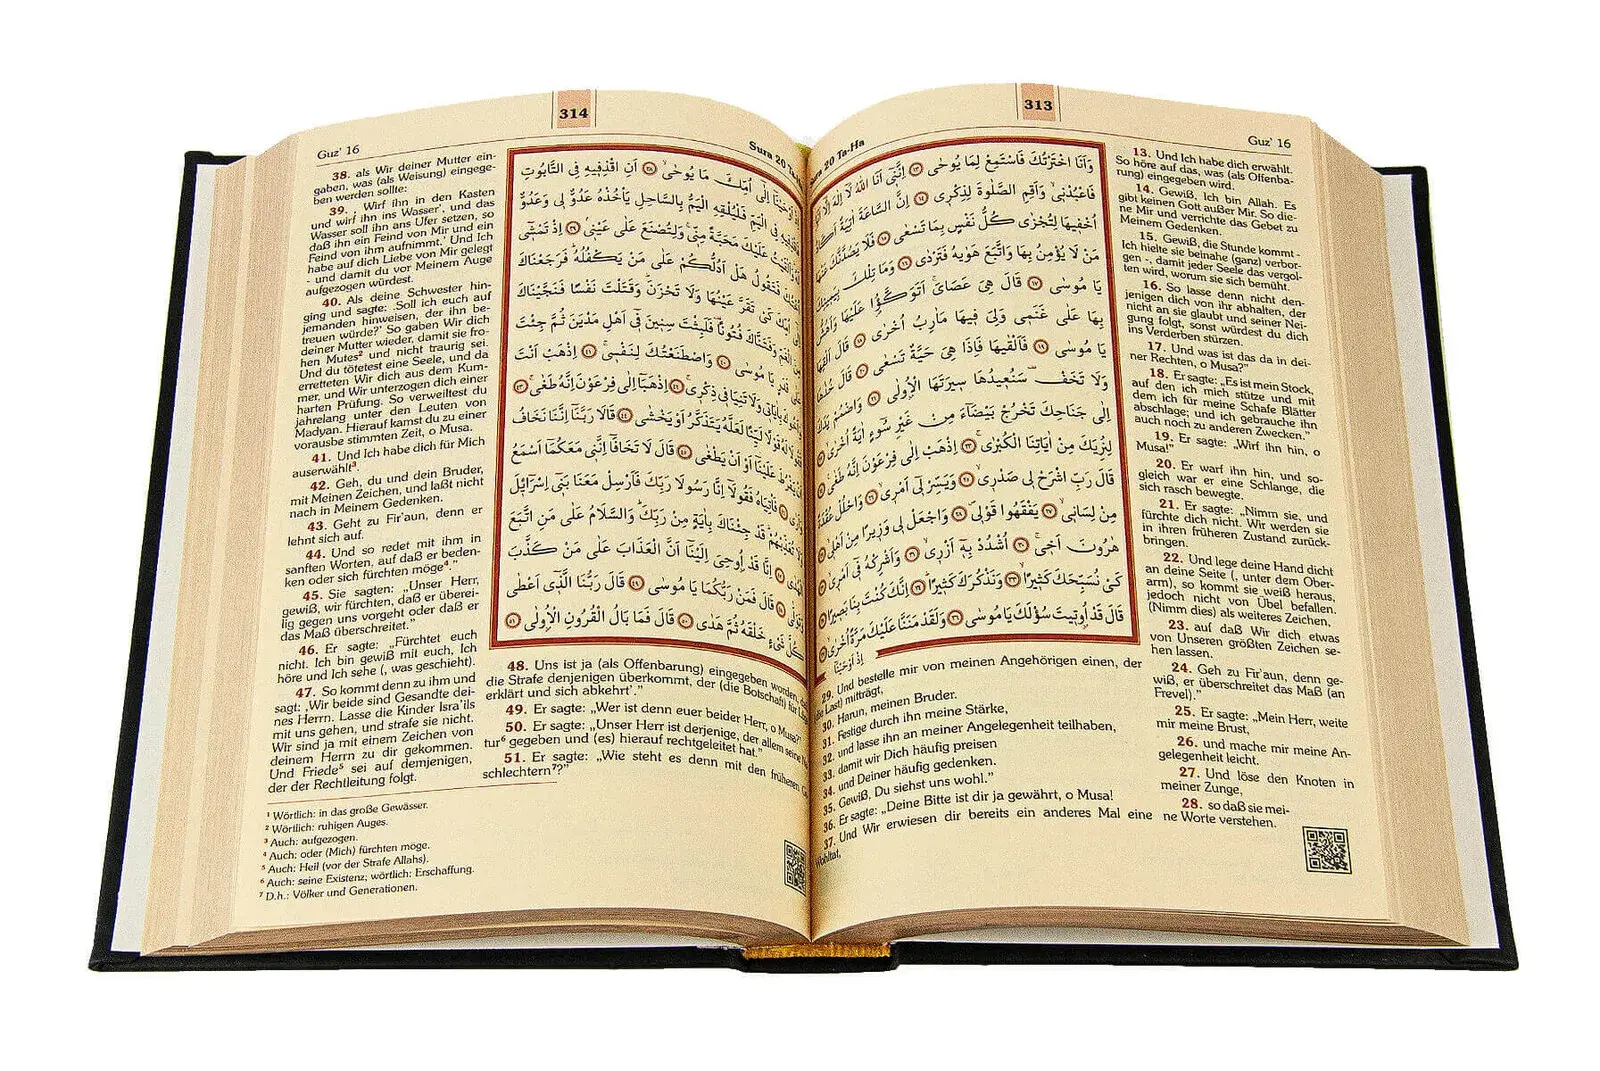 313
Sura 20 Ta-Ha
Guz' 16
وَاَنَا اخْتَرْتُكَ فَاسْتَمِعْ لِمَا يُوحٰى ﴿١٣﴾ اِنَّنٖٓي اَنَا اللّٰهُ لَٓا اِلٰهَ اِلَّٓا
فَاعْبُدْنٖي وَاَقِمِ الصَّلٰوةَ لِذِكْرٖي ﴿١٤﴾ اِنَّ السَّاعَةَ اٰتِيَةٌ اَكَادُ
اُخْفٖيهَا لِتُجْزٰى كُلُّ نَفْسٍ بِمَا تَسْعٰى ﴿١٥﴾ فَلَا يَصُدَّنَّكَ عَنْهَا
مَنْ لَا يُؤْمِنُ بِهَا وَاتَّبَعَ هَوٰيهُ فَتَرْدٰى ﴿١٦﴾ وَمَا تِلْكَ بِيَمٖينِكَ
يَا مُوسٰى ﴿١٧﴾ قَالَ هِيَ عَصَايَ اَتَوَكَّؤُ۬ا عَلَيْهَا وَاَهُشُّ
بِهَا عَلٰى غَنَمٖي وَلِيَ فٖيهَا مَاٰرِبُ اُخْرٰى ﴿١٨﴾ قَالَ اَلْقِهَا
يَا مُوسٰى ﴿١٩﴾ فَاَلْقٰيهَا فَاِذَا هِيَ حَيَّةٌ تَسْعٰى ﴿٢٠﴾ قَالَ خُذْهَا
وَلَا تَخَفْ سَنُعٖيدُهَا سٖيرَتَهَا الْاُو۫لٰى ﴿٢١﴾ وَاضْمُمْ يَدَكَ
اِلٰى جَنَاحِكَ تَخْرُجْ بَيْضَٓاءَ مِنْ غَيْرِ سُٓوءٍ اٰيَةً اُخْرٰى ﴿٢٢﴾
لِنُرِيَكَ مِنْ اٰيَاتِنَا الْكُبْرٰى ﴿٢٣﴾ اِذْهَبْ اِلٰى فِرْعَوْنَ اِنَّهُ طَغٰى ﴿٢٤﴾
قَالَ رَبِّ اشْرَحْ لٖي صَدْرٖي ﴿٢٥﴾ وَيَسِّرْ لٖٓي اَمْرٖي ﴿٢٦﴾ وَاحْلُلْ عُقْدَةً
مِنْ لِسَانٖي ﴿٢٧﴾ يَفْقَهُوا قَوْلٖي ﴿٢٨﴾ وَاجْعَلْ لٖي وَزٖيرًا مِنْ اَهْلٖي ﴿٢٩﴾
هٰرُونَ اَخٖي ﴿٣٠﴾ اُشْدُدْ بِهٖٓ اَزْرٖي ﴿٣١﴾ وَاَشْرِكْهُ فٖٓي اَمْرٖي ﴿٣٢﴾
كَيْ نُسَبِّحَكَ كَثٖيرًا ﴿٣٣﴾ وَنَذْكُرَكَ كَثٖيرًا ﴿٣٤﴾ اِنَّكَ كُنْتَ بِنَا بَصٖيرًا ﴿٣٥﴾
قَالَ قَدْ اُو۫تٖيتَ سُؤْلَكَ يَا مُوسٰى ﴿٣٦﴾ وَلَقَدْ مَنَنَّا عَلَيْكَ مَرَّةً اُخْرٰى ﴿٣٧﴾
اِذْ اَوْحَيْنَٓا
13. Und Ich habe dich erwählt.
So höre auf das, was (als Offenba-
rung) eingegeben wird.
14. Gewiß, Ich bin Allah. Es
gibt keinen Gott außer Mir. So die-
ne Mir und verrichte das Gebet zu
Meinem Gedenken.
15. Gewiß, die Stunde kommt -
Ich hielte sie beinahe (ganz) verbor-
gen -, damit jeder Seele das vergol-
ten wird, worum sie sich bemüht.
16. So lasse denn nicht den-
jenigen dich von ihr abhalten, der
nicht an sie glaubt und seiner Nei-
gung folgt, sonst würdest du dich
ins Verderben stürzen.
17. Und was ist das da in dei-
ner Rechten, o Musa?"
18. Er sagte: „Es ist mein Stock,
auf den ich mich stütze und mit
dem ich für meine Schafe Blätter
abschlage; und ich gebrauche ihn
auch noch zu anderen Zwecken."
19. Er sagte: „Wirf ihn hin, o
Musa!"
20. Er warf ihn hin, und so-
gleich war er eine Schlange, die
sich rasch bewegte.
21. Er sagte: „Nimm sie, und
fürchte dich nicht. Wir werden sie
in ihren früheren Zustand zurück-
bringen.
22. Und lege deine Hand dicht
an deine Seite (, unter dem Ober-
arm), so kommt sie weiß heraus,
jedoch nicht von Übel befallen.
(Nimm dies) als weiteres Zeichen,
23. auf daß Wir dich etwas
von Unseren größten Zeichen se-
hen lassen.
24. Geh zu Fir'aun, denn ge-
wiß, er überschreitet das Maß (an
Frevel)."
25. Er sagte: „Mein Herr, weite
mir meine Brust,
26. und mache mir meine An-
gelegenheit leicht.
27. Und löse den Knoten in
meiner Zunge,
28. so daß sie mei-
ne Worte verstehen.
29. Und bestelle mir von meinen Angehörigen einen, der
(die Last) mitträgt,
30. Harun, meinen Bruder.
31. Festige durch ihn meine Stärke,
32. und lasse ihn an meiner Angelegenheit teilhaben,
33. damit wir Dich häufig preisen
34. und Deiner häufig gedenken.
35. Gewiß, Du siehst uns wohl."
36. Er sagte: „Deine Bitte ist dir ja gewährt, o Musa!
37. Und Wir erwiesen dir bereits ein anderes Mal eine
Wohltat,
314
Guz' 16
Sura 20
اِلٰٓى اُمِّكَ مَا يُوحٰى ﴿٣٨﴾ اَنِ اقْذِفٖيهِ فِي التَّابُوتِ
فِي الْيَمِّ فَلْيُلْقِهِ الْيَمُّ بِالسَّاحِلِ يَاْخُذْهُ عَدُوٌّ لٖي وَعَدُوٌّ
عَلَيْكَ مَحَبَّةً مِنّٖي وَلِتُصْنَعَ عَلٰى عَيْنٖي ﴿٣٩﴾ اِذْ تَمْشٖٓي
فَتَقُولُ هَلْ اَدُلُّكُمْ عَلٰى مَنْ يَكْفُلُهُ فَرَجَعْنَاكَ
اُمِّكَ كَيْ تَقَرَّ عَيْنُهَا وَلَا تَحْزَنَ وَقَتَلْتَ نَفْسًا فَنَجَّيْنَاكَ
وَفَتَنَّاكَ فُتُونًا فَلَبِثْتَ سِنٖينَ فٖٓي اَهْلِ مَدْيَنَ ثُمَّ جِئْتَ
قَدَرٍ يَا مُوسٰى ﴿٤٠﴾ وَاصْطَنَعْتُكَ لِنَفْسٖي ﴿٤١﴾ اِذْهَبْ اَنْتَ
بِاٰيَاتٖي وَلَا تَنِيَا فٖي ذِكْرٖي ﴿٤٢﴾ اِذْهَبَٓا اِلٰى فِرْعَوْنَ اِنَّهُ طَغٰى ﴿٤٣﴾
لَهُ قَوْلًا لَيِّنًا لَعَلَّهُ يَتَذَكَّرُ اَوْ يَخْشٰى ﴿٤٤﴾ قَالَا رَبَّنَٓا اِنَّنَا نَخَافُ
يَفْرُطَ عَلَيْنَٓا اَوْ اَنْ يَطْغٰى ﴿٤٥﴾ قَالَ لَا تَخَافَٓا اِنَّنٖي مَعَكُمَٓا اَسْمَعُ
فَاْتِيَاهُ فَقُولَٓا اِنَّا رَسُولَا رَبِّكَ فَاَرْسِلْ مَعَنَا بَنٖٓي اِسْرَٓائٖلَ
تُعَذِّبْهُمْ قَدْ جِئْنَاكَ بِاٰيَةٍ مِنْ رَبِّكَ وَالسَّلَامُ عَلٰى مَنِ اتَّبَعَ
الْهُدٰى ﴿٤٧﴾ اِنَّا قَدْ اُو۫حِيَ اِلَيْنَٓا اَنَّ الْعَذَابَ عَلٰى مَنْ كَذَّبَ
وَتَوَلّٰى ﴿٤٨﴾ قَالَ فَمَنْ رَبُّكُمَا يَا مُوسٰى ﴿٤٩﴾ قَالَ رَبُّنَا الَّذٖٓي اَعْطٰى
كُلَّ شَيْءٍ خَلْقَهُ ثُمَّ هَدٰى ﴿٥٠﴾ قَالَ فَمَا بَالُ الْقُرُونِ الْاُو۫لٰى ﴿٥١﴾
38. als Wir deiner Mutter ein-
gaben, was (als Weisung) eingege-
ben werden sollte:
39. ‚Wirf ihn in den Kasten
und wirf ihn ins Wasser¹, und das
Wasser soll ihn ans Ufer setzen, so
daß ihn ein Feind von Mir und ein
Feind von ihm aufnimmt.' Und Ich
habe auf dich Liebe von Mir gelegt
- und damit du vor Meinem Auge
aufgezogen würdest.
40. Als deine Schwester hin-
ging und sagte: ‚Soll ich euch auf
jemanden hinweisen, der ihn be-
treuen würde?' So gaben Wir dich
deiner Mutter wieder, damit sie fro-
hen Mutes² und nicht traurig sei.
Und du tötetest eine Seele, und da
erretteten Wir dich aus dem Kum-
mer, und Wir unterzogen dich einer
harten Prüfung. So verweiltest du
jahrelang unter den Leuten von
Madyan. Hierauf kamst du zu einer
vorausbestimmten Zeit, o Musa.
41. Und Ich habe dich für Mich
auserwählt³.
42. Geh, du und dein Bruder,
mit Meinen Zeichen, und laßt nicht
nach in Meinem Gedenken.
43. Geht zu Fir'aun, denn er
lehnt sich auf.
44. Und so redet mit ihm in
sanften Worten, auf daß er beden-
ken oder sich fürchten möge⁴."
45. Sie sagten: „Unser Herr,
gewiß, wir fürchten, daß er überei-
lig gegen uns vorgeht oder daß er
das Maß überschreitet."
46. Er sagte: „Fürchtet euch
nicht. Ich bin gewiß mit euch, Ich
höre und Ich sehe (, was geschieht).
47. So kommt denn zu ihm und
sagt: ‚Wir beide sind Gesandte dei-
nes Herrn. Lasse die Kinder Isra'ils
mit uns gehen, und strafe sie nicht.
Wir sind ja mit einem Zeichen von
deinem Herrn zu dir gekommen.
Und Friede⁵ sei auf demjenigen,
der der Rechtleitung folgt.
48. Uns ist ja (als Offenbarung) eingegeben worden,
die Strafe denjenigen überkommt, der (die Botschaft) für
erklärt und sich abkehrt'."
49. Er sagte: „Wer ist denn euer beider Herr, o Musa?"
50. Er sagte: „Unser Herr ist derjenige, der allem seine
tur⁶ gegeben und (es) hierauf rechtgeleitet hat."
51. Er sagte: „Wie steht es denn mit den früheren
schlechtern⁷?"
¹ Wörtlich: in das große Gewässer.
² Wörtlich: ruhigen Auges.
³ Auch: aufgezogen.
⁴ Auch: oder (Mich) fürchten möge.
⁵ Auch: Heil (vor der Strafe Allahs).
⁶ Auch: seine Existenz; wörtlich: Erschaffung.
⁷ D.h.: Völker und Generationen.